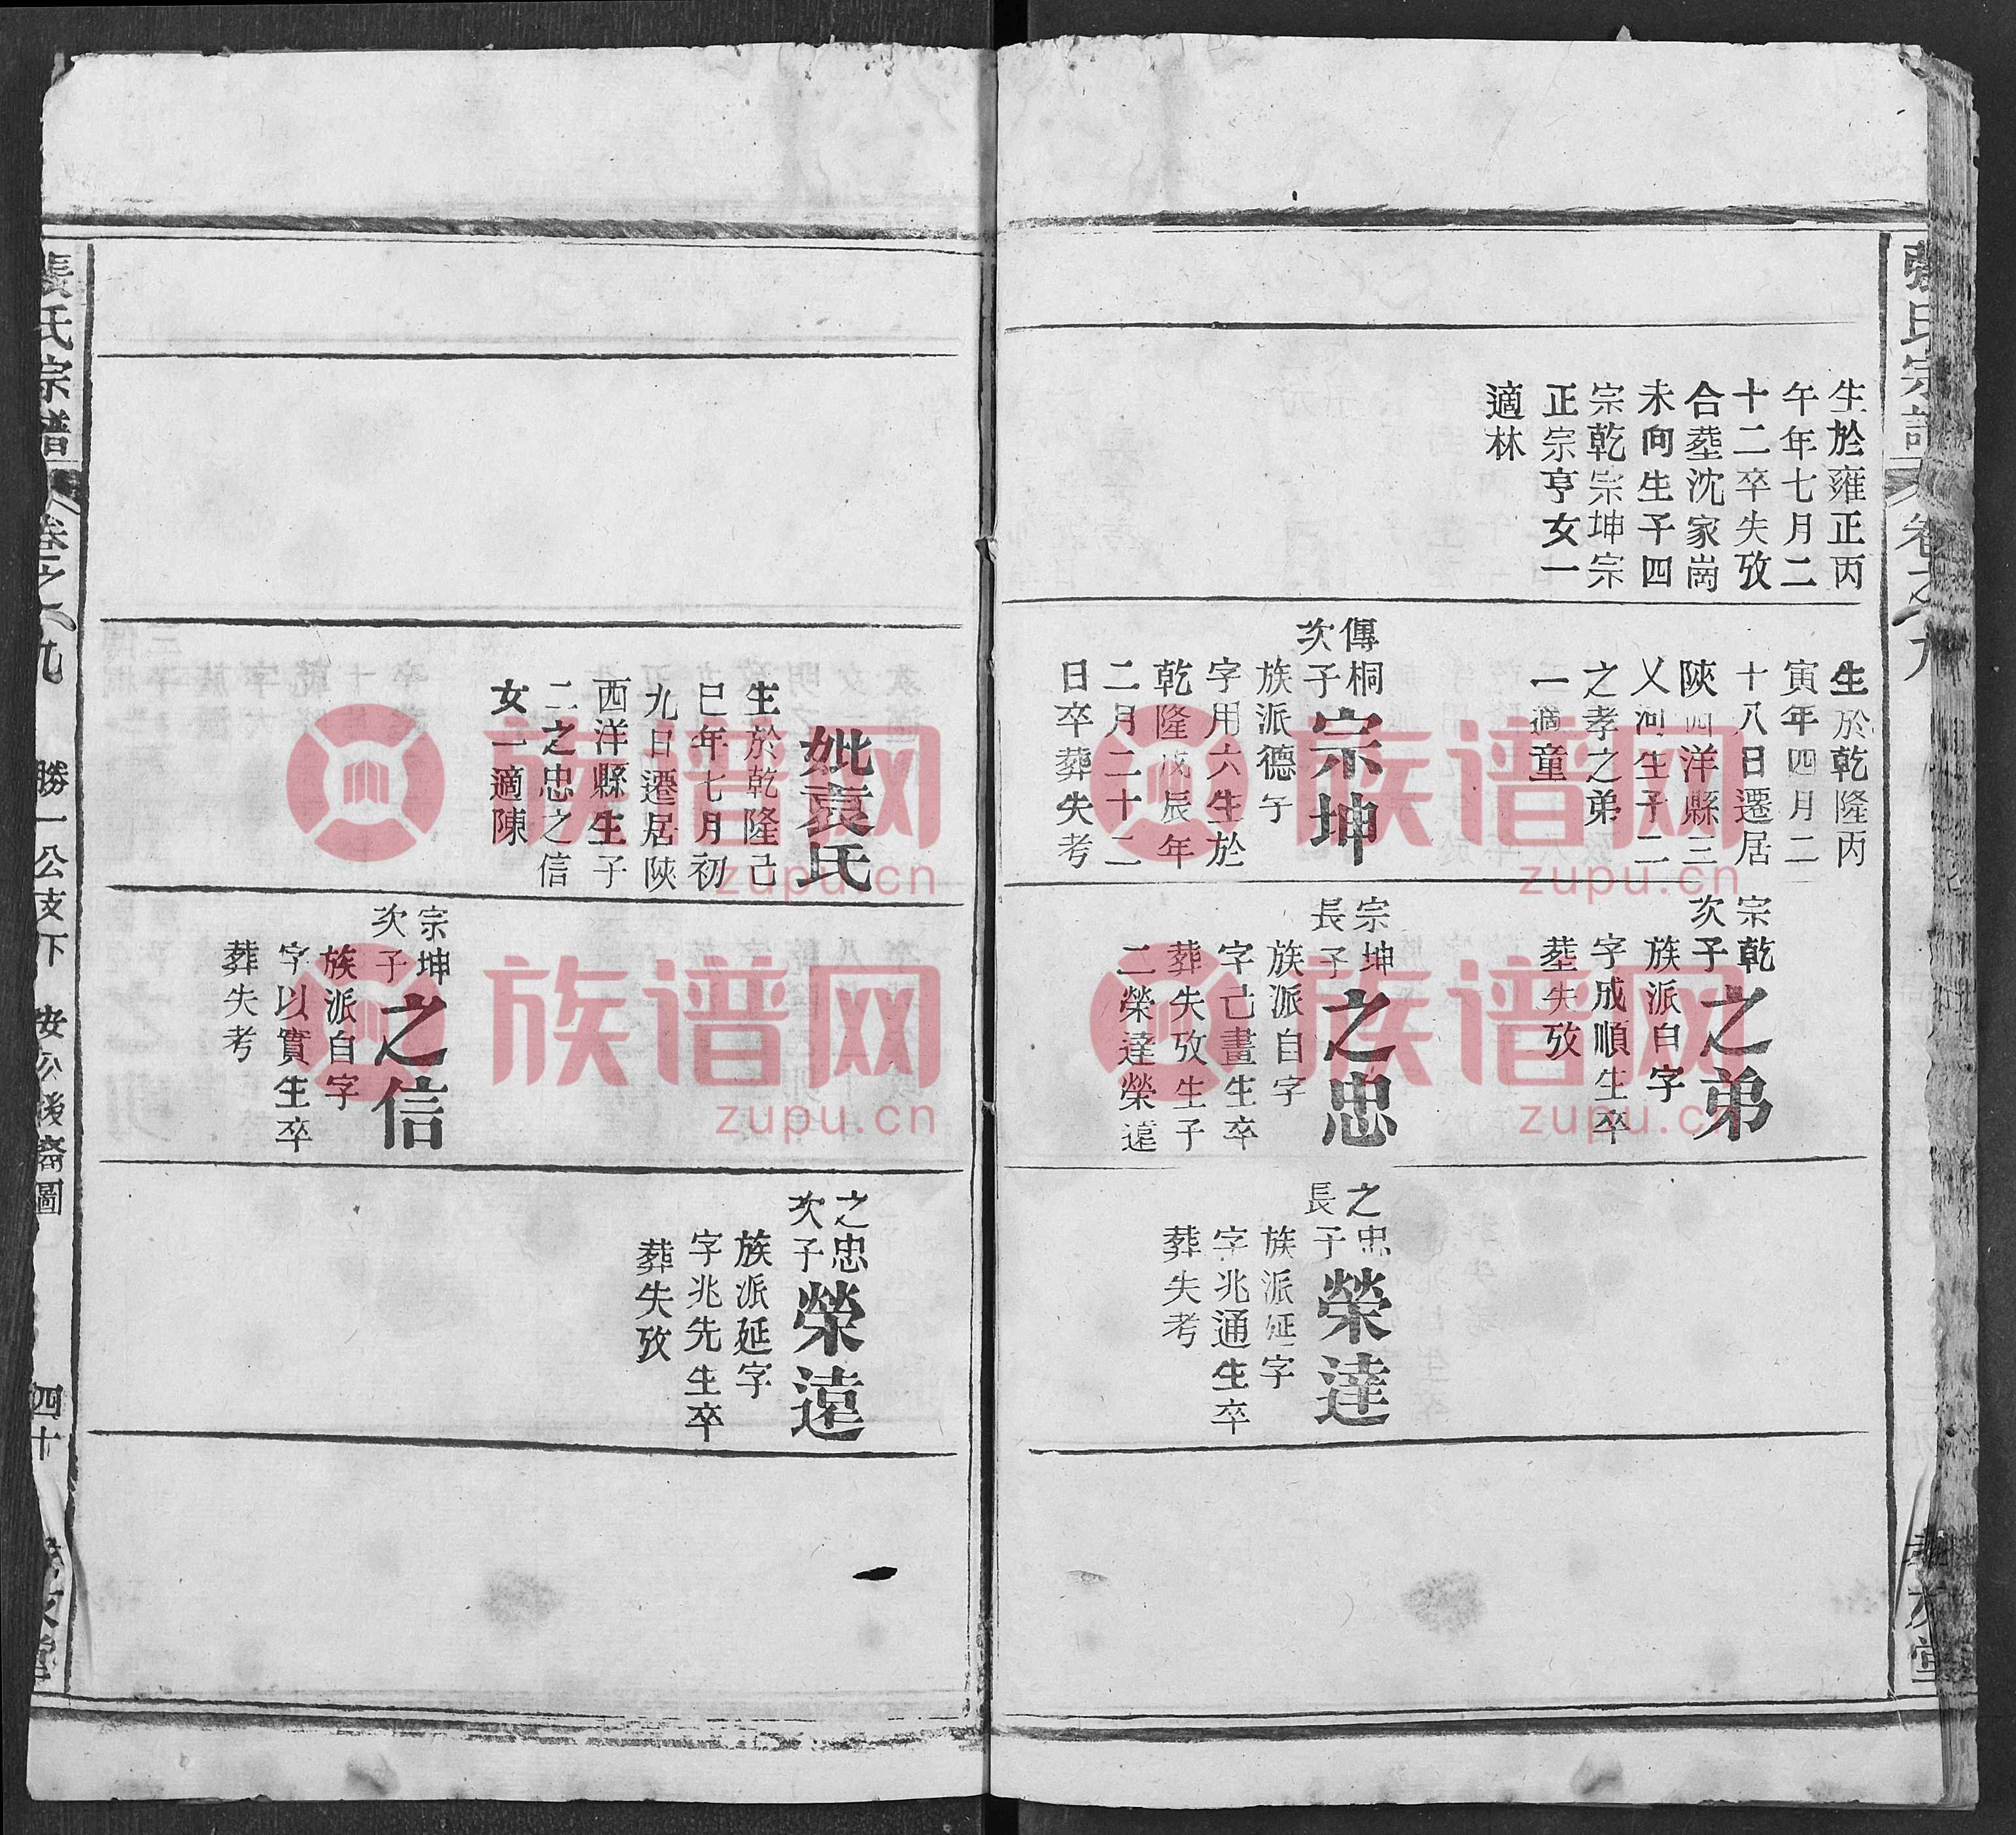 張氏宗譜
卷之九
生於雍正丙
午年七月二
十二卒失攷
合塟沈家崗
未向生子四
宗乾宗坤宗
正宗亨女一
適林
生於乾隆丙
寅年四月二
十八日遷居
陝西洋縣三
乂河生子二
之孝之弟
一適童
傳桐
次子
宗坤
族派德字
字用六生於
乾隆戊辰年
二月二十二
日卒葬失考
宗乾
次子
之弟
族派自字
字成順生卒
塟失攷
宗坤
長子
之忠
族派自字
字己畫生卒
葬失攷生子
二榮達榮遠
之忠
長子
榮達
族派延字
字兆通生卒
葬失考
妣袁氏
生於乾隆己
巳年七月初
九日遷居陝
西洋縣生子
二之忠之信
女一適陳
宗坤
次子
之信
族派自字
字以實生卒
葬失考
之忠
次子
榮遠
族派延字
字兆先生卒
葬失攷
張氏宗譜
卷之九
勝一公支下
安公後裔圖
四十
族谱网
zupu.cn
族谱网
zupu.cn
族谱网
zupu.cn
族谱网
zupu.cn